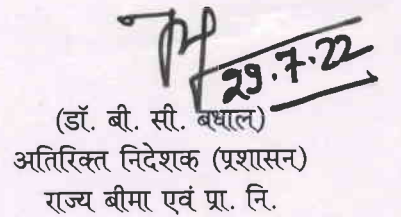 29.7.22
(डॉ. बी. सी. बधाल)
अतिरिक्त निदेशक (प्रशासन)
राज्य बीमा एवं प्रा. नि.